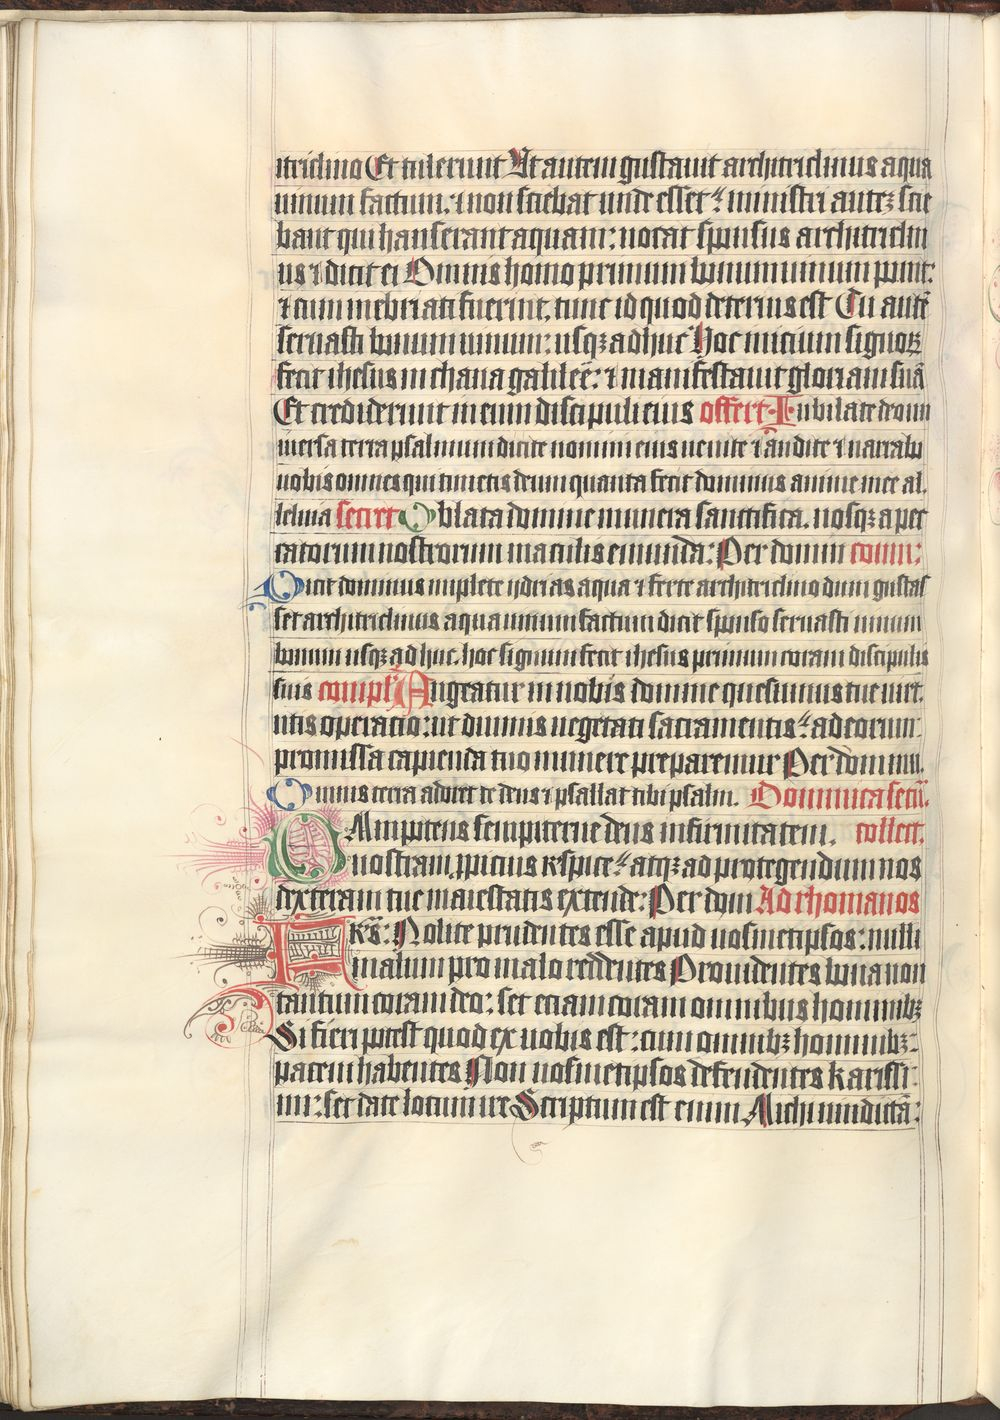 itriclino Et tulerunt Ut autem gustauit architriclinus aqua
uinum factum: ⁊ non sciebat unde esset: ministri auteȝ scie
bant qui hauserant aquam: uocat sponsus architriclin
us ⁊ dicit ei Omnis homo primum bonum uinum ponit:
⁊ cum inebriati fuerint. tunc id quod deterius est Tu autē
seruasti bonum uinum: usqȝ adhuc Hoc inicium signoꝝ
fecit ihesus in chana galileē: ⁊ manifestauit gloriam suā
Et crediderunt in eum discipuli eius offert Iubilate deo un
iuersa terra psalmum dicite nomini eius uenite ⁊ audite ⁊ narrabo
uobis omnes qui timetis deum quanta fecit dominus anime mee al.
leluia secret Oblata domine munera sanctifica. nosqȝ a pec
catorum nostrorum maculis emunda: Per domin comm:
Dicit dominus implete ydrias aqua ⁊ ferte architriclino dum gustas
set architriclinus aqua uinum factum dicit sponso seruasti uinum
bonum usqȝ adhuc. hoc signum fecit ihesus primum coram discipulis
suis compl Augeatur in nobis domine quesumus tue uirt.
utis operacio: ut diuinis uegetati sacramentis: ad eorum
promissa capienda tuo munere preparemur Per dominu.
Omnis terra adoret te deus ⁊ psallat tibi psalm. Dominica secū.
OMnipotens sempiterne deus infirmitatem. collect.
nostram ꝓpicius respice: atqȝ ad protegendum nos
dexteram tue maiestatis extende: Per dom Ad rhomanos
FRēs: Nolite prudentes esse apud uosmetipsos: nulli
malum pro malo reddentes Prouidentes bona non
tantum coram deo: set etiam coram omnibus hominibȝ
Si fieri potest quod ex uobis est: cum omnibȝ hominibȝ:
pacem habentes Non uosmetipsos defendentes karissi:
mi: set date locum ire Scriptum est enim Michi uindictā: